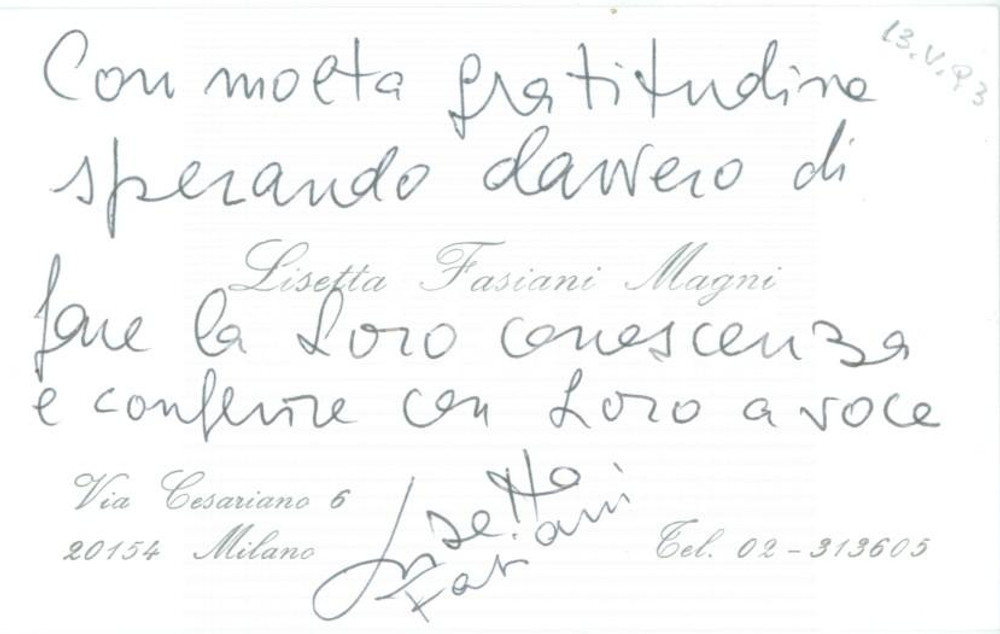 13.V.93
Con molta gratitudine
sperando davvero di
Lisetta Fasiani Magni
fare la Loro conoscenza
e conferire con Loro a voce
Via Cesariano 6
20154 Milano
Lisetta
Fasiani
Tel. 02-313605